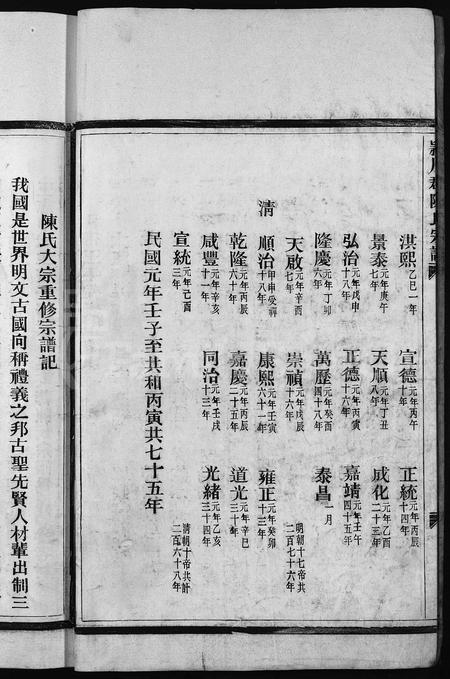 潁川郡陳氏宗譜
洪熙 乙巳一年 宣德 元年丙午 十年 正統 元年丙辰 十四年
景泰 元年庚午 七年 天順 元年丁丑 八年 成化 元年乙酉 二十三年
弘治 元年戊申 十八年 正德 元年丙寅 十六年 嘉靖 元年壬午 四十五年
隆慶 元年丁卯 六年 萬歷 元年癸酉 四十八年 泰昌 一月
天啟 元年辛酉 七年 崇禎 元年戊辰 十六年 明朝十七帝共 二百七十六年
清 順治 甲申受禪 十八年 康熙 元年壬寅 六十一年 雍正 元年癸卯 十三年
乾隆 元年丙辰 六十年 嘉慶 元年丙辰 二十五年 道光 元年辛巳 三十年
咸豐 元年辛亥 十一年 同治 元年壬戌 十三年 光緒 元年乙亥 三十四年
宣統 元年己酉 三年 清朝十帝共計 二百六十八年
民國元年壬子至共和丙寅共七十五年
陳氏大宗重修宗譜記
我國是世界明文古國向稱禮義之邦古聖先賢人材輩出制三